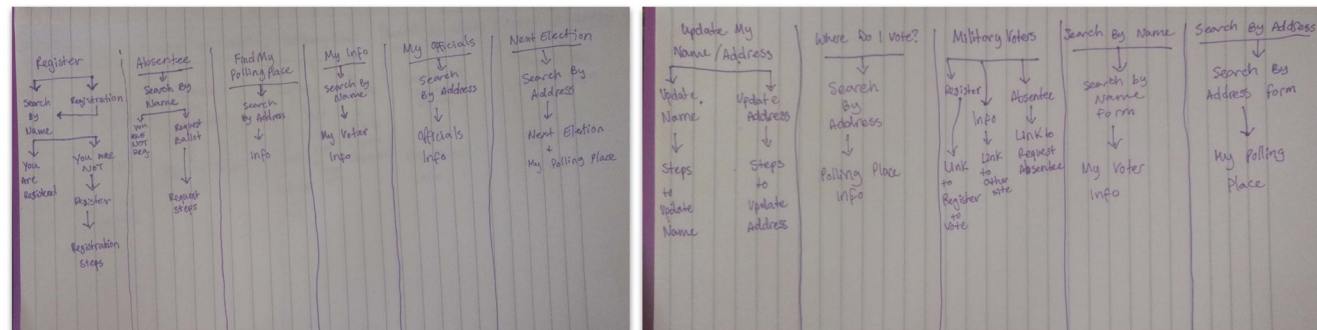 Register
Search
By
Name
Registration
You
Are
Registered
You Are
NOT
Register
Registration
Steps
Absentee
Search By
Name
Are
NOT
Reg.
Request
Ballot
Request
Steps
Find My
Polling Place
Search
By Address
Info
My Info
Search By
Name
My Voter
Info
My Officials
Search
By Address
Officials
Info
Next Election
Search By
Address
Next Election
+
My Polling Place
Update My
Name/Address
Update
Name
Steps
to
Update
Name
Update
Address
Steps
to
Update
Address
Where Do I Vote?
Search
By
Address
Polling Place
Info
Military Voters
Register
Link
to
Register
to
Vote
Info
Link
to
other
site
Absentee
Link to
Request
Absentee
Search By Name
Search by
Name
form
My Voter
Info
Search By Address
Search By
Address form
My Polling
Place